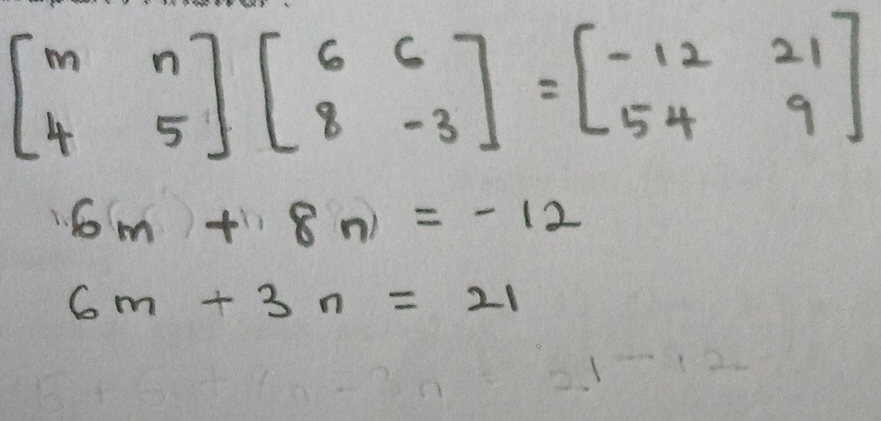 [m n
4 5] [6 6
8 -3] = [-12 21
54 9]
6m + 8n = -12
6m + 3n = 21